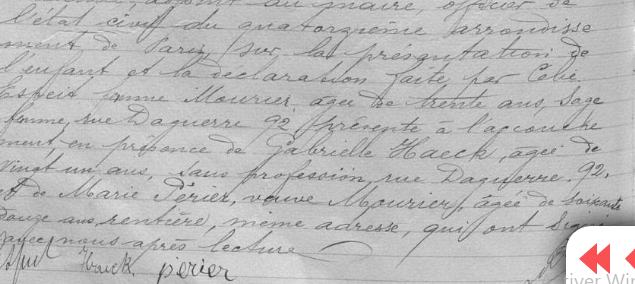 adjoint au maire, officier de
l'état civil du quatorzième arrondisse
ment de Paris, sur la présentation de
l'enfant et la déclaration faite par Cébé
Espeit femme Mourier, agée de trente ans, Sage
femme, rue Daguerre 92 présente à l'accouche
ment, en présence de Gabrielle Haeck, agée de
vingt un ans, sans profession, rue Daguerre. 92.
et de Marie Périer, veuve Mourier, âgée de soixante
douze ans, rentière, même adresse, qui ont signé
avec nous après lecture
Haeck périer
river Win